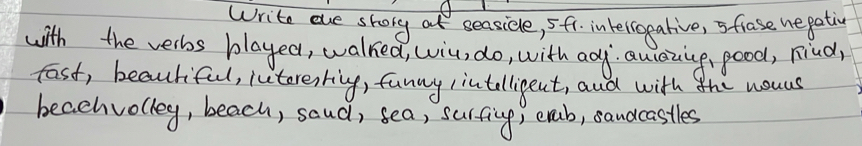 Write one story at seaside, 5 fr. interrogative, 5 frase negativ
with the verbs played, walked, win, do, with adj. amazing, good, kind,
fast, beautiful, interesting, funny, intelligent, and with the nouns
beachvolley, beach, sand, sea, surfing, crab, sandcastles